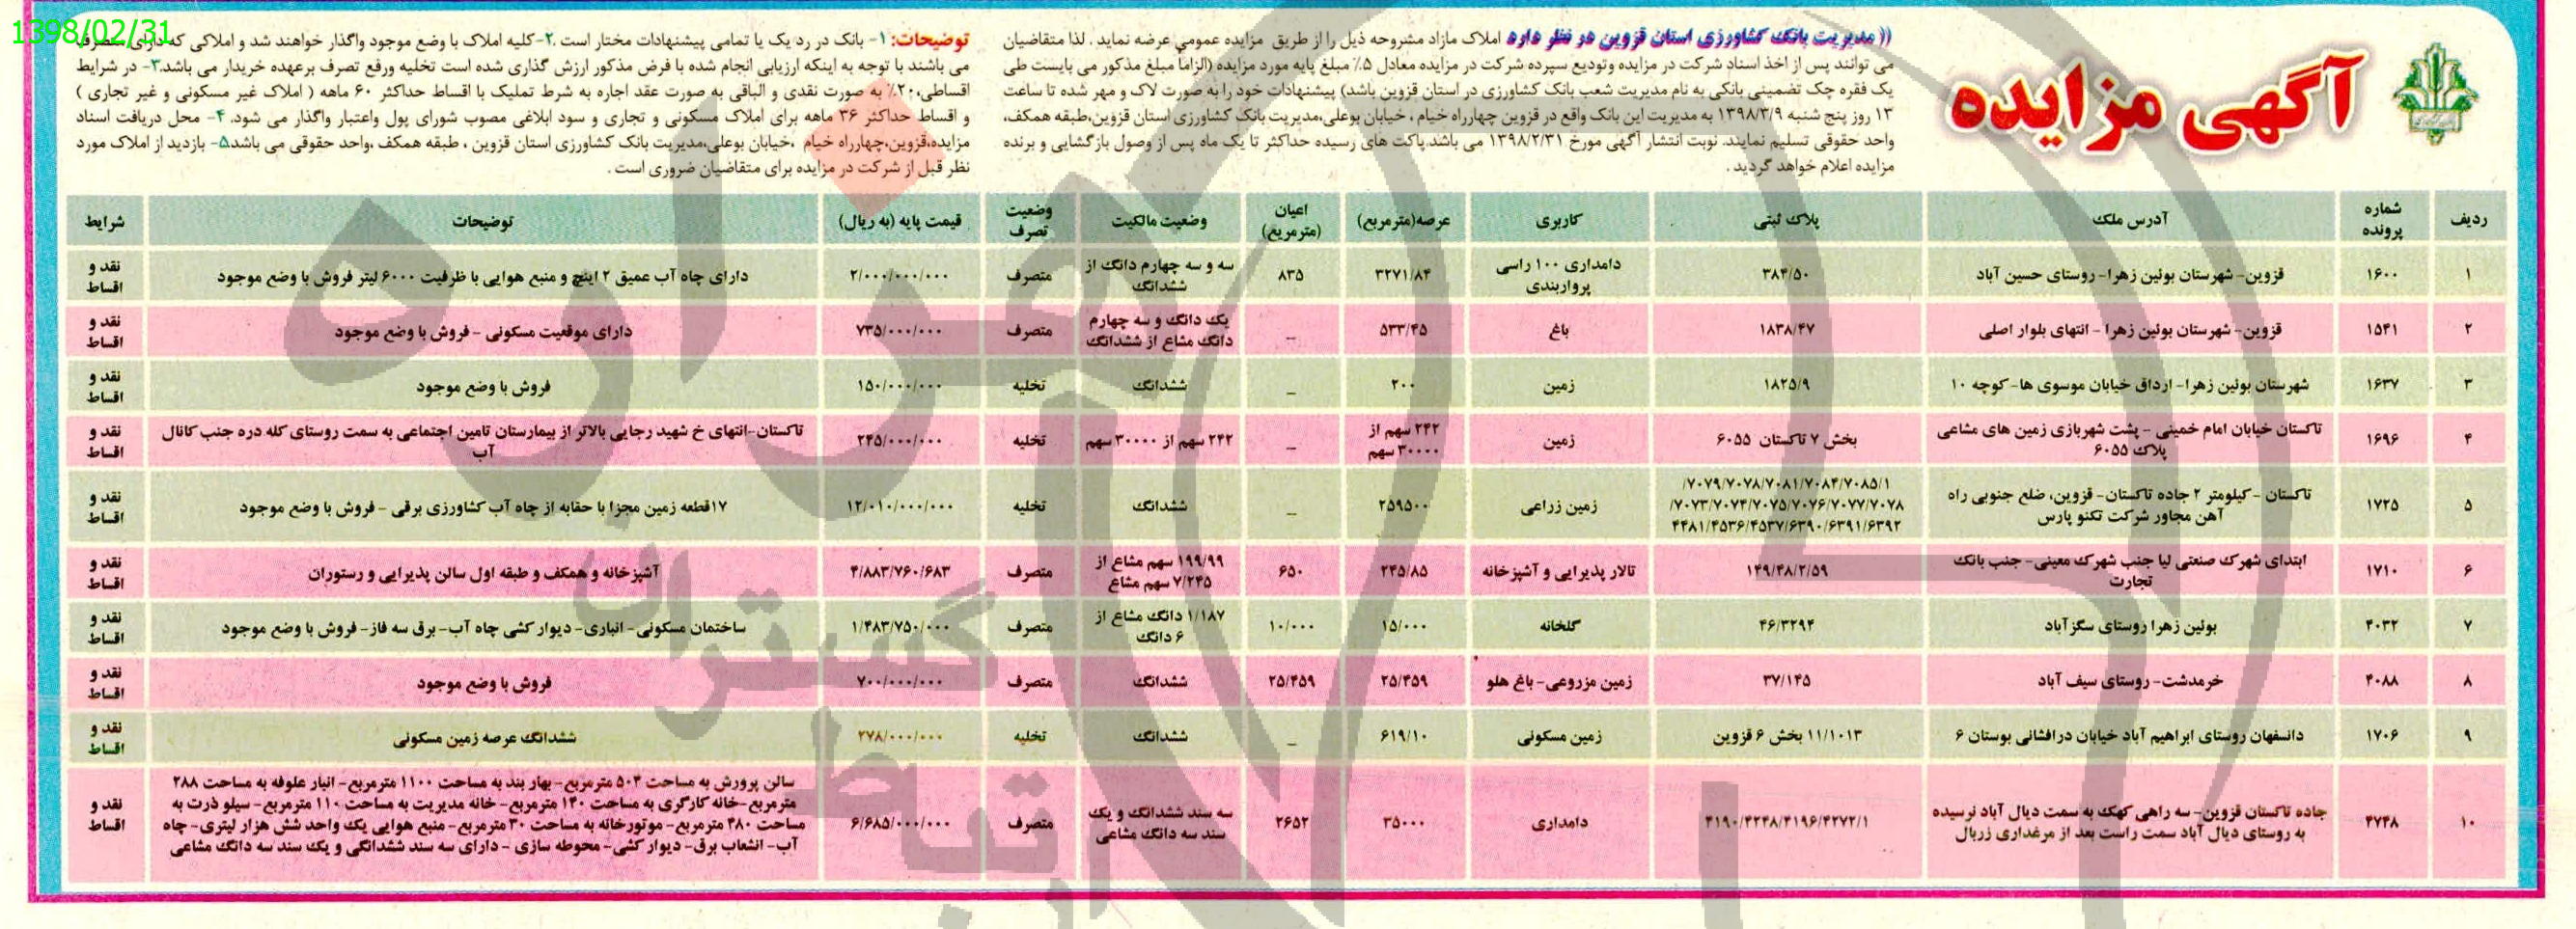 1398/02/31
آگهی مزایده
(( مدیریت بانک کشاورزی استان قزوین در نظر دارد املاک مازاد مشروحه ذیل را از طریق مزایده عمومی عرضه نماید . لذا متقاضیان
می توانند پس از اخذ اسناد شرکت در مزایده وتودیع سپرده شرکت در مزایده معادل ۵٪ مبلغ پایه مورد مزایده (الزاماً مبلغ مذکور می بایست طی
یک فقره چک تضمینی بانکی به نام مدیریت شعب بانک کشاورزی در استان قزوین باشد) پیشنهادات خود را به صورت لاک و مهر شده تا ساعت
۱۳ روز پنج شنبه ۱۳۹۸/۳/۹ به مدیریت این بانک واقع در قزوین چهارراه خیام ، خیابان بوعلی،مدیریت بانک کشاورزی استان قزوین،طبقه همکف،
واحد حقوقی تسلیم نمایند. نوبت انتشار آگهی مورخ ۱۳۹۸/۲/۳۱ می باشد.پاکت های رسیده حداکثر تا یک ماه پس از وصول بازگشایی و برنده
مزایده اعلام خواهد گردید .
توضیحات: ۱- بانک در رد یک یا تمامی پیشنهادات مختار است .۲-کلیه املاک با وضع موجود واگذار خواهند شد و املاکی که دارای متصرف
می باشند با توجه به اینکه ارزیابی انجام شده با فرض مذکور ارزش گذاری شده است تخلیه ورفع تصرف برعهده خریدار می باشد.۳- در شرایط
اقساطی،۲۰٪ به صورت نقدی و الباقی به صورت عقد اجاره به شرط تملیک با اقساط حداکثر ۶۰ ماهه ( املاک غیر مسکونی و غیر تجاری )
و اقساط حداکثر ۳۶ ماهه برای املاک مسکونی و تجاری و سود ابلاغی مصوب شورای پول واعتبار واگذار می شود. ۴- محل دریافت اسناد
مزایده،قزوین،چهارراه خیام ،خیابان بوعلی،مدیریت بانک کشاورزی استان قزوین ، طبقه همکف ،واحد حقوقی می باشد.۵- بازدید از املاک مورد
نظر قبل از شرکت در مزایده برای متقاضیان ضروری است .
ردیف شماره پرونده آدرس ملک پلاک ثبتی کاربری عرصه(مترمربع) اعیان (مترمربع) وضعیت مالکیت وضعیت تصرف قیمت پایه (به ریال) توضیحات شرایط
۱ ۱۶۰۰ قزوین- شهرستان بوئین زهرا- روستای حسین آباد ۳۸۴/۵۰ دامداری ۱۰۰ راسی پرواربندی ۳۲۷۱/۸۴ ۸۳۵ سه و سه چهارم دانگ از ششدانگ متصرف ۲/۰۰۰/۰۰۰/۰۰۰ دارای چاه آب عمیق ۲ اینچ و منبع هوایی با ظرفیت ۶۰۰۰ لیتر فروش با وضع موجود نقد و اقساط
۲ ۱۵۴۱ قزوین- شهرستان بوئین زهرا - انتهای بلوار اصلی ۱۸۳۸/۴۷ باغ ۵۳۳/۴۵ _ یک دانگ و سه چهارم دانگ مشاع از ششدانگ متصرف ۷۳۵/۰۰۰/۰۰۰ دارای موقعیت مسکونی - فروش با وضع موجود نقد و اقساط
۳ ۱۶۳۷ شهرستان بوئین زهرا- ارداق خیابان موسوی ها- کوچه ۱۰ ۱۸۲۵/۹ زمین ۲۰۰ _ ششدانگ تخلیه ۱۵۰/۰۰۰/۰۰۰ فروش با وضع موجود نقد و اقساط
۴ ۱۶۹۶ تاکستان خیابان امام خمینی - پشت شهربازی زمین های مشاعی پلاک ۶۰۵۵ بخش ۷ تاکستان ۶۰۵۵ زمین ۲۴۲ سهم از ۳۰۰۰۰ سهم _ ۲۴۲ سهم از ۳۰۰۰۰ سهم تخلیه ۲۴۵/۰۰۰/۰۰۰ تاکستان-انتهای خ شهید رجایی بالاتر از بیمارستان تامین اجتماعی به سمت روستای کله دره جنب کانال آب نقد و اقساط
۵ ۱۷۲۵ تاکستان - کیلومتر ۲ جاده تاکستان- قزوین، ضلع جنوبی راه آهن مجاور شرکت تکنو پارس ۷۰۷۹/۷۰۷۸/۷۰۸۱/۷۰۸۴/۷۰۸۵/۱/ ۷۰۷۳/۷۰۷۴/۷۰۷۵/۷۰۷۶/۷۰۷۷/۷۰۷۸/ ۴۴۸۱/۴۵۳۶/۴۵۳۷/۶۳۹۰/۶۳۹۱/۶۳۹۲ زمین زراعی ۲۵۹۵۰۰ _ ششدانگ تخلیه ۱۲/۰۱۰/۰۰۰/۰۰۰ ۱۷قطعه زمین مجزا با حقابه از چاه آب کشاورزی برقی - فروش با وضع موجود نقد و اقساط
۶ ۱۷۱۰ ابتدای شهرک صنعتی لیا جنب شهرک معینی- جنب بانک تجارت ۱۴۹/۴۸/۲/۵۹ تالار پذیرایی و آشپزخانه ۲۴۵/۸۵ ۶۵۰ ۱۹۹/۹۹ سهم مشاع از ۷/۲۴۵ سهم مشاع متصرف ۴/۸۸۳/۷۶۰/۶۸۳ آشپزخانه و همکف و طبقه اول سالن پذیرایی و رستوران نقد و اقساط
۷ ۴۰۳۲ بوئین زهرا روستای سگزآباد ۴۶/۳۲۹۴ گلخانه ۱۵/۰۰۰ ۱۰/۰۰۰ ۱/۱۸۷ دانگ مشاع از ۶ دانگ متصرف ۱/۴۸۳/۷۵۰/۰۰۰ ساختمان مسکونی- انباری- دیوار کشی چاه آب- برق سه فاز- فروش با وضع موجود نقد و اقساط
۸ ۴۰۸۸ خرمدشت- روستای سیف آباد ۳۷/۱۴۵ زمین مزروعی- باغ هلو ۲۵/۴۵۹ ۲۵/۴۵۹ ششدانگ متصرف ۷۰۰/۰۰۰/۰۰۰ فروش با وضع موجود نقد و اقساط
۹ ۱۷۰۶ دانسفهان روستای ابراهیم آباد خیابان درافشانی بوستان ۶ ۱۱/۱۰۱۳ بخش ۶ قزوین زمین مسکونی ۶۱۹/۱۰ _ ششدانگ تخلیه ۲۷۸/۰۰۰/۰۰۰ ششدانگ عرصه زمین مسکونی نقد و اقساط
۱۰ ۴۷۴۸ جاده تاکستان قزوین- سه راهی کهک به سمت دیال آباد نرسیده به روستای دیال آباد سمت راست بعد از مرغداری زربال ۴۱۹۰/۴۲۴۸/۴۱۹۶/۴۲۷۲/۱ دامداری ۳۵۰۰۰ ۲۶۵۲ سه سند ششدانگ و یک سند سه دانگ مشاعی متصرف ۶/۶۸۵/۰۰۰/۰۰۰ سالن پرورش به مساحت ۵۰۴ مترمربع- بهار بند به مساحت ۱۱۰۰ مترمربع- انبار علوفه به مساحت ۲۸۸ مترمربع-خانه کارگری به مساحت ۱۴۰ مترمربع- خانه مدیریت به مساحت ۱۱۰ مترمربع- سیلو ذرت به مساحت ۴۸۰ مترمربع- موتورخانه به مساحت ۳۰ مترمربع- منبع هوایی یک واحد شش هزار لیتری- چاه آب- انشعاب برق- دیوار کشی- محوطه سازی - دارای سه سند ششدانگی و یک سند سه دانگ مشاعی نقد و اقساط